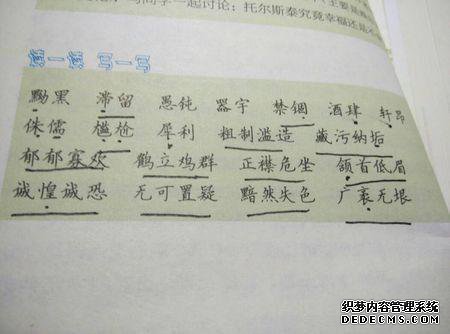 主要是
与同学一起讨论：托尔斯泰究竟幸福还是
黝黑 滞留 愚钝 器宇 禁锢 酒肆 轩昂
侏儒 尴尬 犀利 粗制滥造 藏污纳垢
郁郁寡欢 鹤立鸡群 正襟危坐 颔首低眉
诚惶诚恐 无可置疑 黯然失色 广袤无垠
织梦内容管理系统
DEDECMS.COM